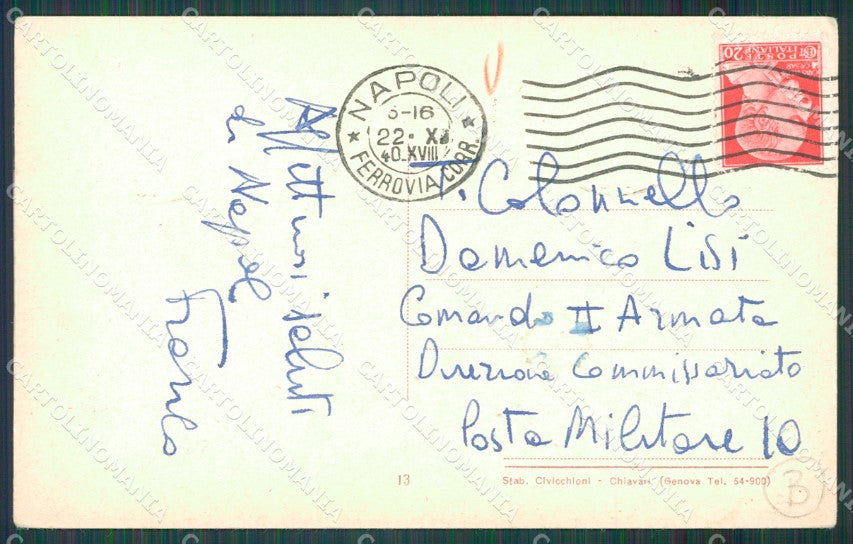 Affettuosi saluti
da Napoli
Franco
NAPOLI
22. XI
40-XVIII
FERROVIA CORR.
POSTE
ITALIANE
20
CESAR
T. Colonnello
Domenico Lisi
Comando II Armata
Direzione Commissariato
Posta Militare 10
13
Stab. Civicchioni - Chiavari (Genova Tel. 54-900)
B
CARTOLINOMANIA